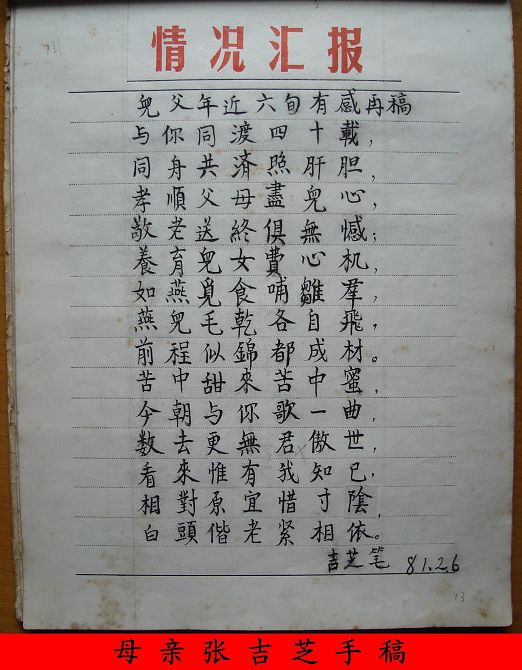 情况汇报
兒父年近六旬有感再稿
与你同渡四十載，
同舟共济照肝胆，
孝順父母盡兒心，
敬老送終俱無憾；
養育兒女費心机，
如燕覓食哺雛羣，
燕兒毛乾各自飛，
前程似錦都成材。
苦中甜來苦中蜜，
今朝与你歌一曲，
数去更無君傲世，
看來惟有我知已，
相對原宜惜寸陰，
白頭偕老緊相依。
吉芝笔 81.2.6
13
母亲张吉芝手稿